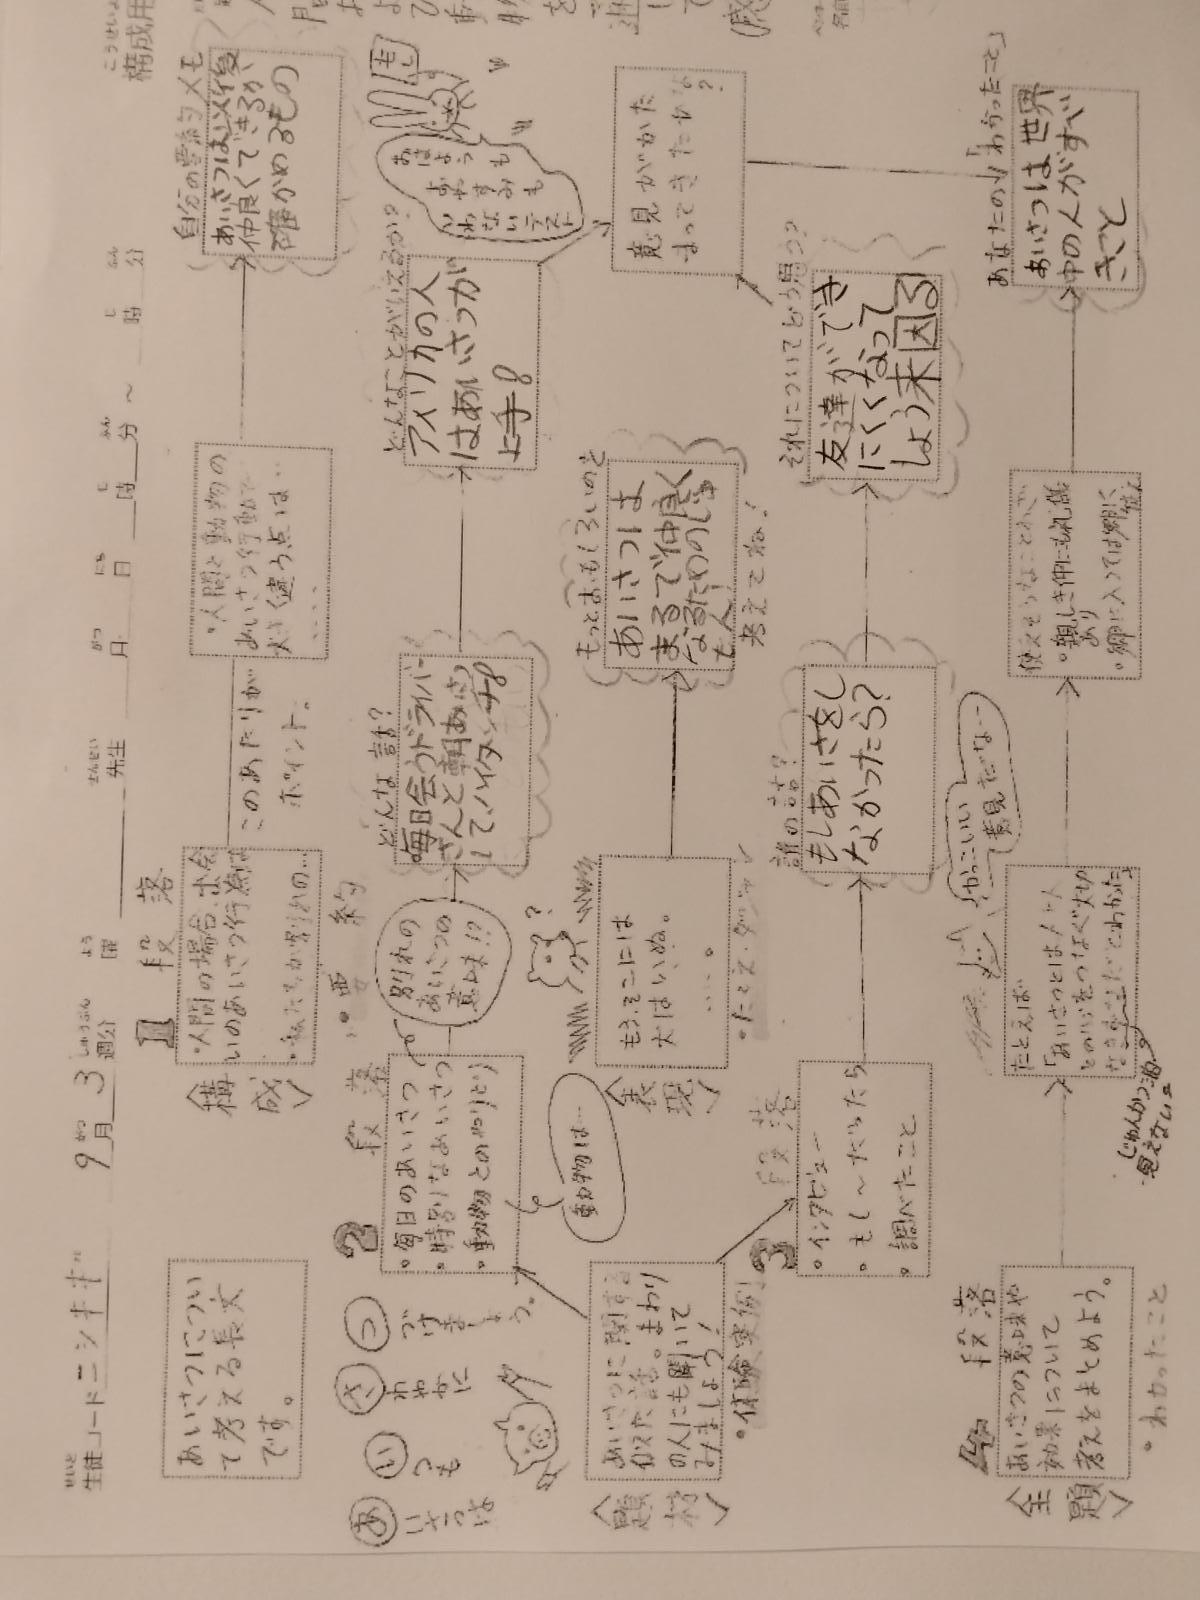 構成用
こうせいよう
生徒コード ニシキギ
せいと
9月 3週分
がつ しゅうぶん
曜
よう
先生
せんせい
月 日 時 分 ～ 時 分
がつ にち じ ふん じ ふん
あいさつについ
て考える長文
です。
〈構成〉
1 段落
・人間の場合、出会
いのあいさつ行為は
このあたりが
ポイント。
・人間と動物の
あいさつ行動で
大きく違う点は‥
‥‥
自分の要約メモ
あいさつは以後
仲良くできるか
確かめるもの
あ いさつは
い つも
さ わやかに
つ づけましょう。
2 段落 ・要約
・毎日のあいさつ
・特別なあいさつ
・動物とのやりとり
動物は…
別れの
あいさつの
意味!?
どんな話?
毎日会うドライバー
さんと朝あいさつ
して、ハイタッチ8
どんなことがいえるかな?
アメリカの人
はあいさつが
上手8
おはようも
おやすみも
いわないテスト
〈題材〉
あいさつに関する
似た話。まわり
の人にも聞いて
みましょう!
・体験実例!
〈表現〉
もう、そこには
犬はいぬ。
‥‥。
・たとえ・ダジャレ
?
もっとおもしろいのを
あいさつは
まるで仲良く
なるためのじゅ
も人!
考えてね!
意見がかた
まってきたかな
?
3 段落
・インタビュー
・もし～だったら
・調べたこと
誰の話?
もしあいさをし
なかったら?
それについてどう思う?
友達ができ
にくくなって
しょう来困る
〈主題〉
4 段落
あいさつの意味や
効果について
考えをまとめよう。
・わかったこと
たとえば
「あいさつとは人と人
との心をつなぐ大切
なきずなだとわかった。」
じゅんかつ油
見えない
かっこいい
意見だな…
使えそうなことわざ
・親しき仲にも礼儀
あり
・郷に入っては郷に従え
あなたの「わかったこと」
あいさつは世界
中の人がすべ
きこと